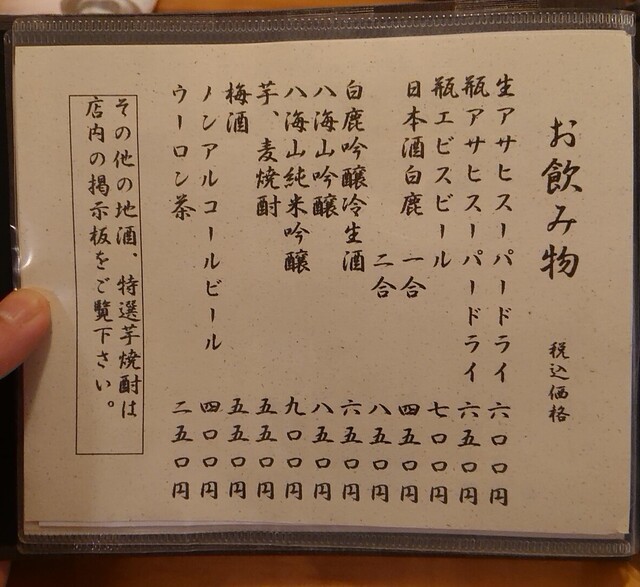 お飲み物 税込価格
生アサヒスーパードライ 六〇〇円
瓶アサヒスーパードライ 六五〇円
瓶エビスビール 七〇〇円
日本酒白鹿 一合 四五〇円
二合 八五〇円
白鹿吟醸冷生酒 六五〇円
八海山吟醸 八五〇円
八海山純米吟醸 九〇〇円
芋、麦焼酎 五五〇円
梅酒 五五〇円
ノンアルコールビール 四〇〇円
ウーロン茶 二五〇円
その他の地酒、特選芋焼酎は
店内の掲示板をご覧下さい。